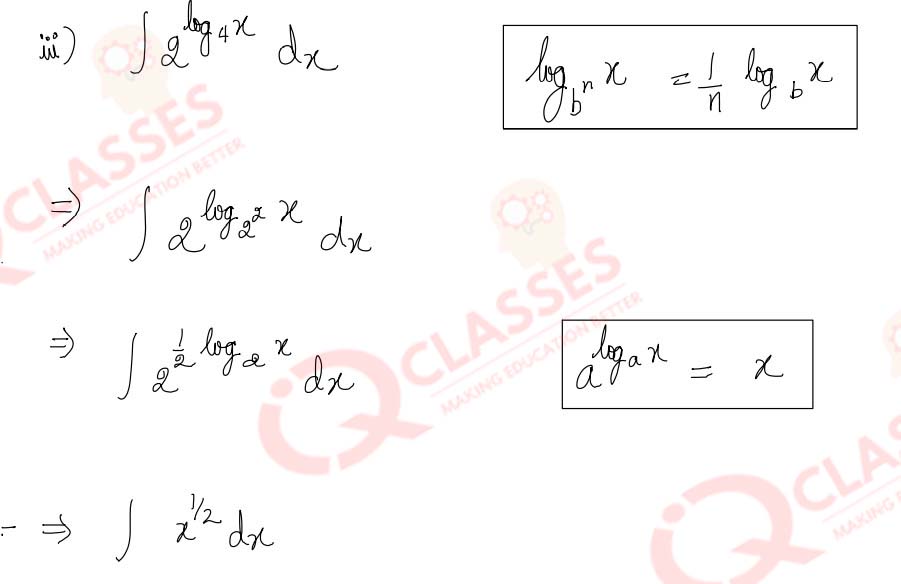 iii) ∫ 2^{log_4 x} dx
log_{b^n} x = 1/n log_b x
⇒ ∫ 2^{log_{2^2} x} dx
⇒ ∫ 2^{1/2 log_2 x} dx
a^{log_a x} = x
⇒ ∫ x^{1/2} dx
CLASSES
MAKING EDUCATION BETTER
QCLASSES
MAKING EDUCATION BETTER
QCLASS
MAKING